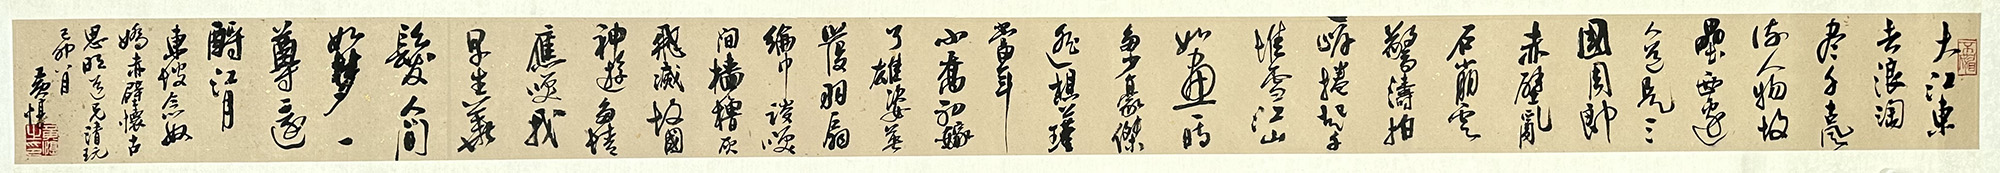 大江東
去浪淘
尽千古風
流人物故
壘西邊
人道是三
國周郎
赤壁亂
石崩雲
驚濤拍
岸捲起千
堆雪江山
如畫一時
多少豪傑
遙想公瑾
當年
小喬初嫁
了雄姿英
發羽扇
綸巾談笑
間檣櫓灰
飛滅故國
神遊多情
應笑我
早生華
髮人間
如夢一
尊還
酹江月
東坡念奴
嬌赤壁懷古
思旺道兄清玩
己卯八月
黃惇